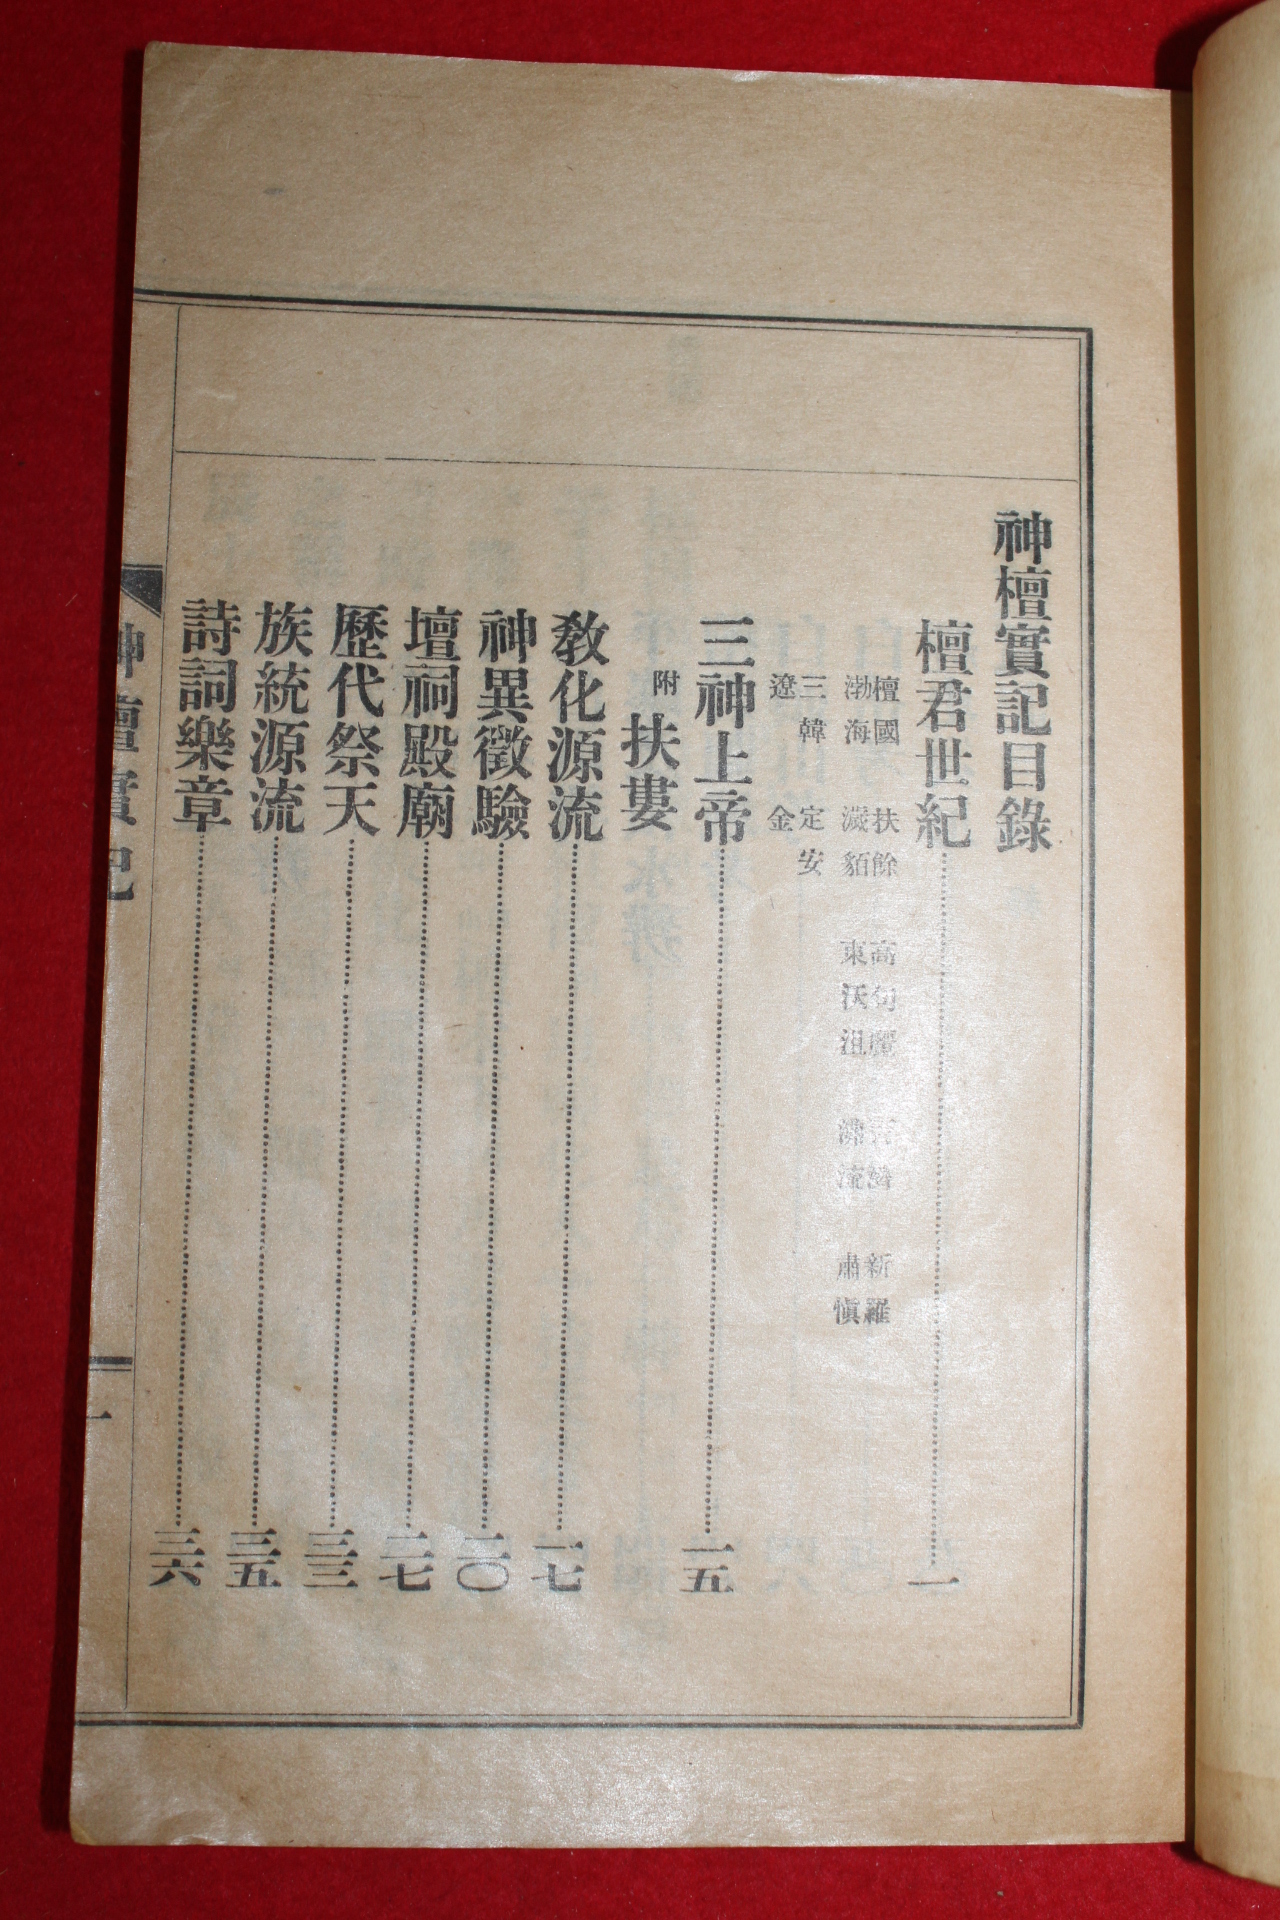 神檀實記目錄
檀君世紀…………一
檀國 扶餘 高句麗 百濟 新羅
渤海 濊貊 東沃沮 沸流 肅愼
三韓 定安
遼 金
三神上帝…………一五
附 扶婁
敎化源流…………一七
神異徵驗…………二〇
壇祠殿廟…………二七
歷代祭天…………三三
族統源流…………三五
詩詞樂章…………三六
神檀實記
一